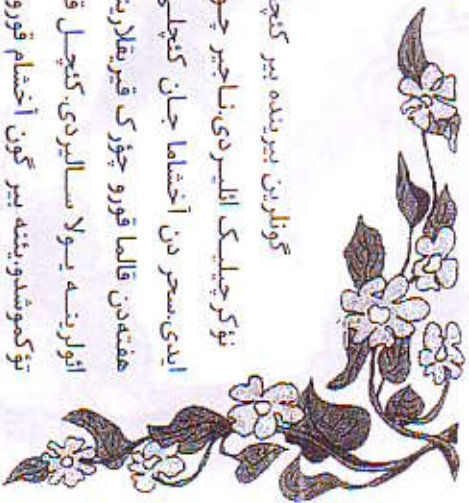 گونلرین بیرینده بیر کئچ
نؤکرچیلیک ائلیردی.تاجیر چو
ایدی.سحر دن آخشاما جان کئچلی
هفته‌دن قالما قورو چؤرک قیریقلاری
ائولرینه یولا سالیردی.کئچل ق
تؤکموشدو.یئنه بیر گون آخشام قورو